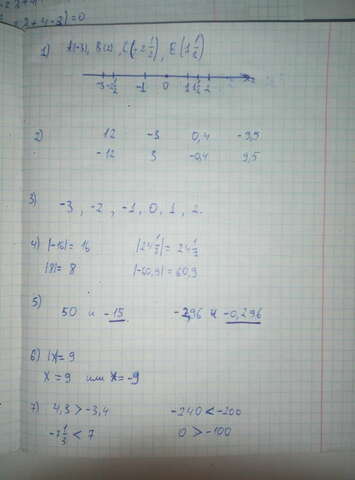 2, 2+4-3)=0
1) A(-3), B(2), C(-2 1/2), E(1 1/2)
-3 -2 1/2 -1 0 1 1 1/2 2 x
2) 12 -3 0,4 -9,5
-12 3 -0,4 9,5
3) -3, -2, -1, 0, 1, 2.
4) |-16|= 16 |24 1/3|= 24 1/3
|8|= 8 |-60,9|=60,9
5) 50 и -15 -2,96 и -0,296
6) |x|= 9
x = 9 или x= -9
7) 4,3 > -3,4 -240 < -200
-7 1/3 < 7 0 > -100